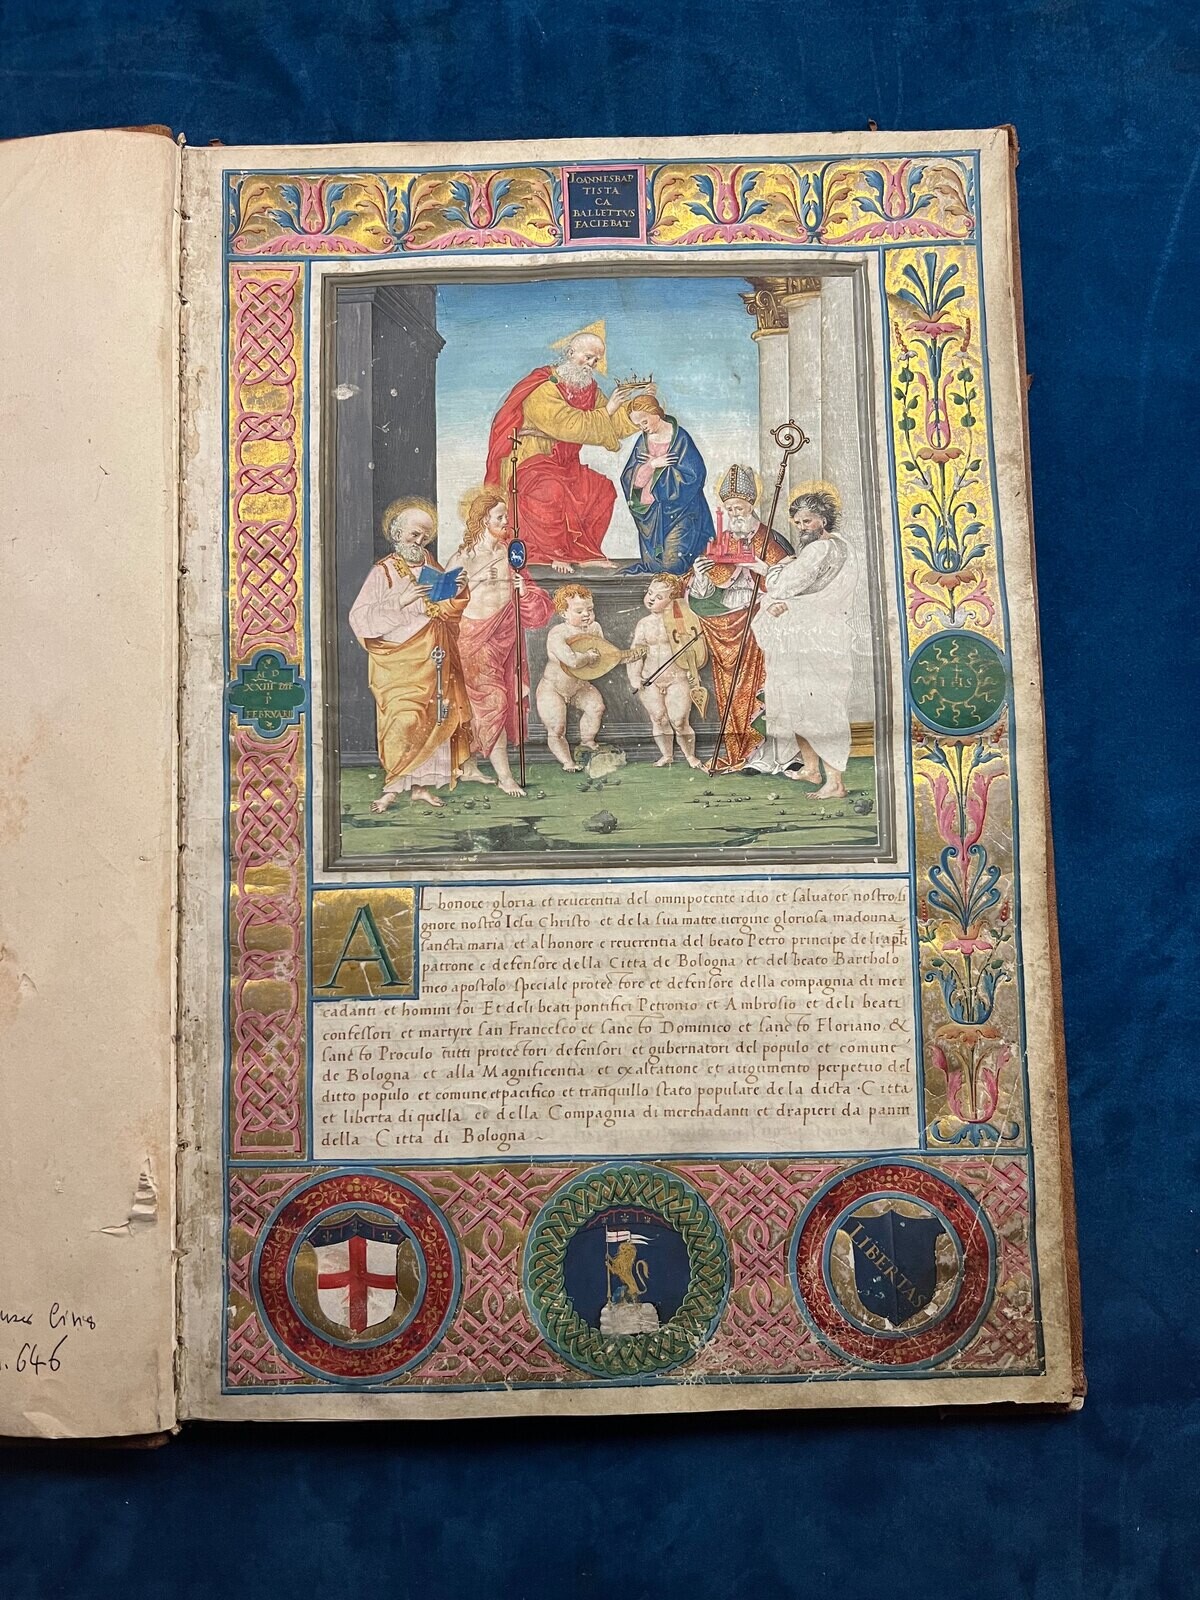 IOANNESBAP
TISTA
CA
BALLETTVS
FACIEBAT
M D
XXIII DIE
P
FEBRVARII
IHS
AL honore gloria et reuerentia del omnipotente idio et saluator nostro si
gnore nostro Iesu Christo et de la sua matre uergine gloriosa madonna
sancta maria et al honore e reuerentia del beato Petro principe de li apli
patrone e defensore della Citta de Bologna et del beato Bartholo
meo apostolo speciale protectore et defensore della compagnia di mer
cadanti et homini soi Et deli beati pontifici Petronio et Ambrosio et deli beati
confessori et martyre san Francesco et sancto Dominico et sancto Floriano &
sancto Proculo tutti protectori defensori et gubernatori del populo et comune
de Bologna et alla Magnificentia et exaltatione et augumento perpetuo del
ditto populo et comune et pacifico et tranquillo stato populare de la dicta Citta
et liberta di quella et della Compagnia di merchadanti et drapieri da panni
della Citta di Bologna
LIBERTAS
646